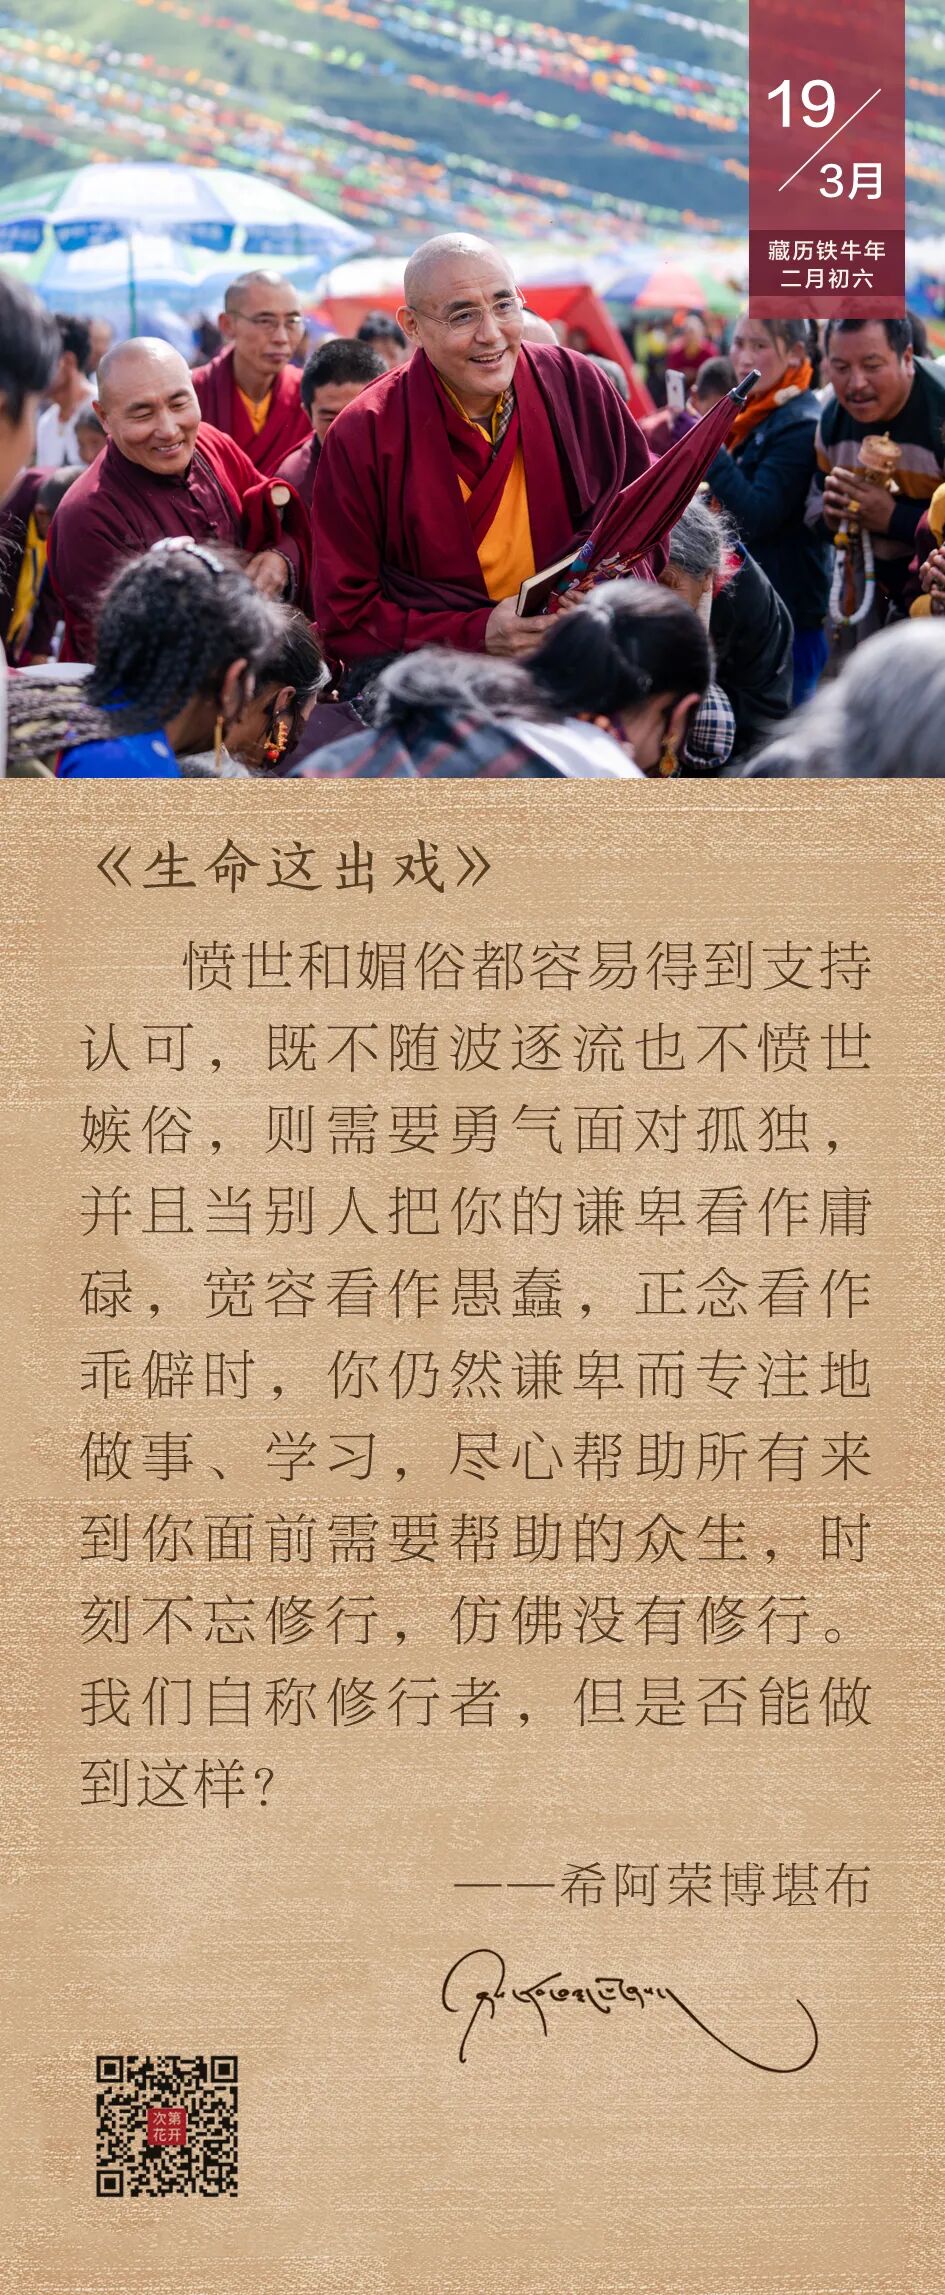 19
3月
藏历铁牛年
二月初六
《生命这出戏》
愤世和媚俗都容易得到支持
认可，既不随波逐流也不愤世
嫉俗，则需要勇气面对孤独，
并且当别人把你的谦卑看作庸
碌，宽容看作愚蠢，正念看作
乖僻时，你仍然谦卑而专注地
做事、学习，尽心帮助所有来
到你面前需要帮助的众生，时
刻不忘修行，仿佛没有修行。
我们自称修行者，但是否能做
到这样？
——希阿荣博堪布
次第
花开